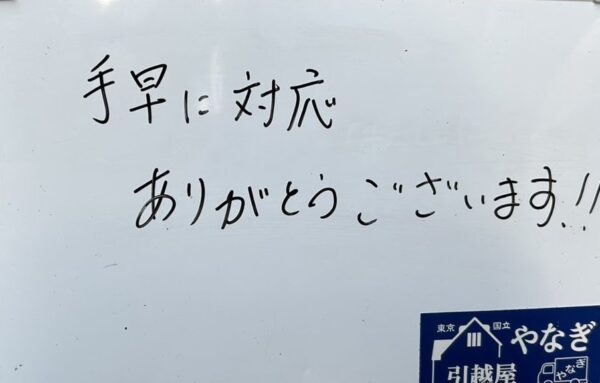 手早に対応
ありがとうございます!!
東京 国立 やなぎ
引越屋 やなぎ